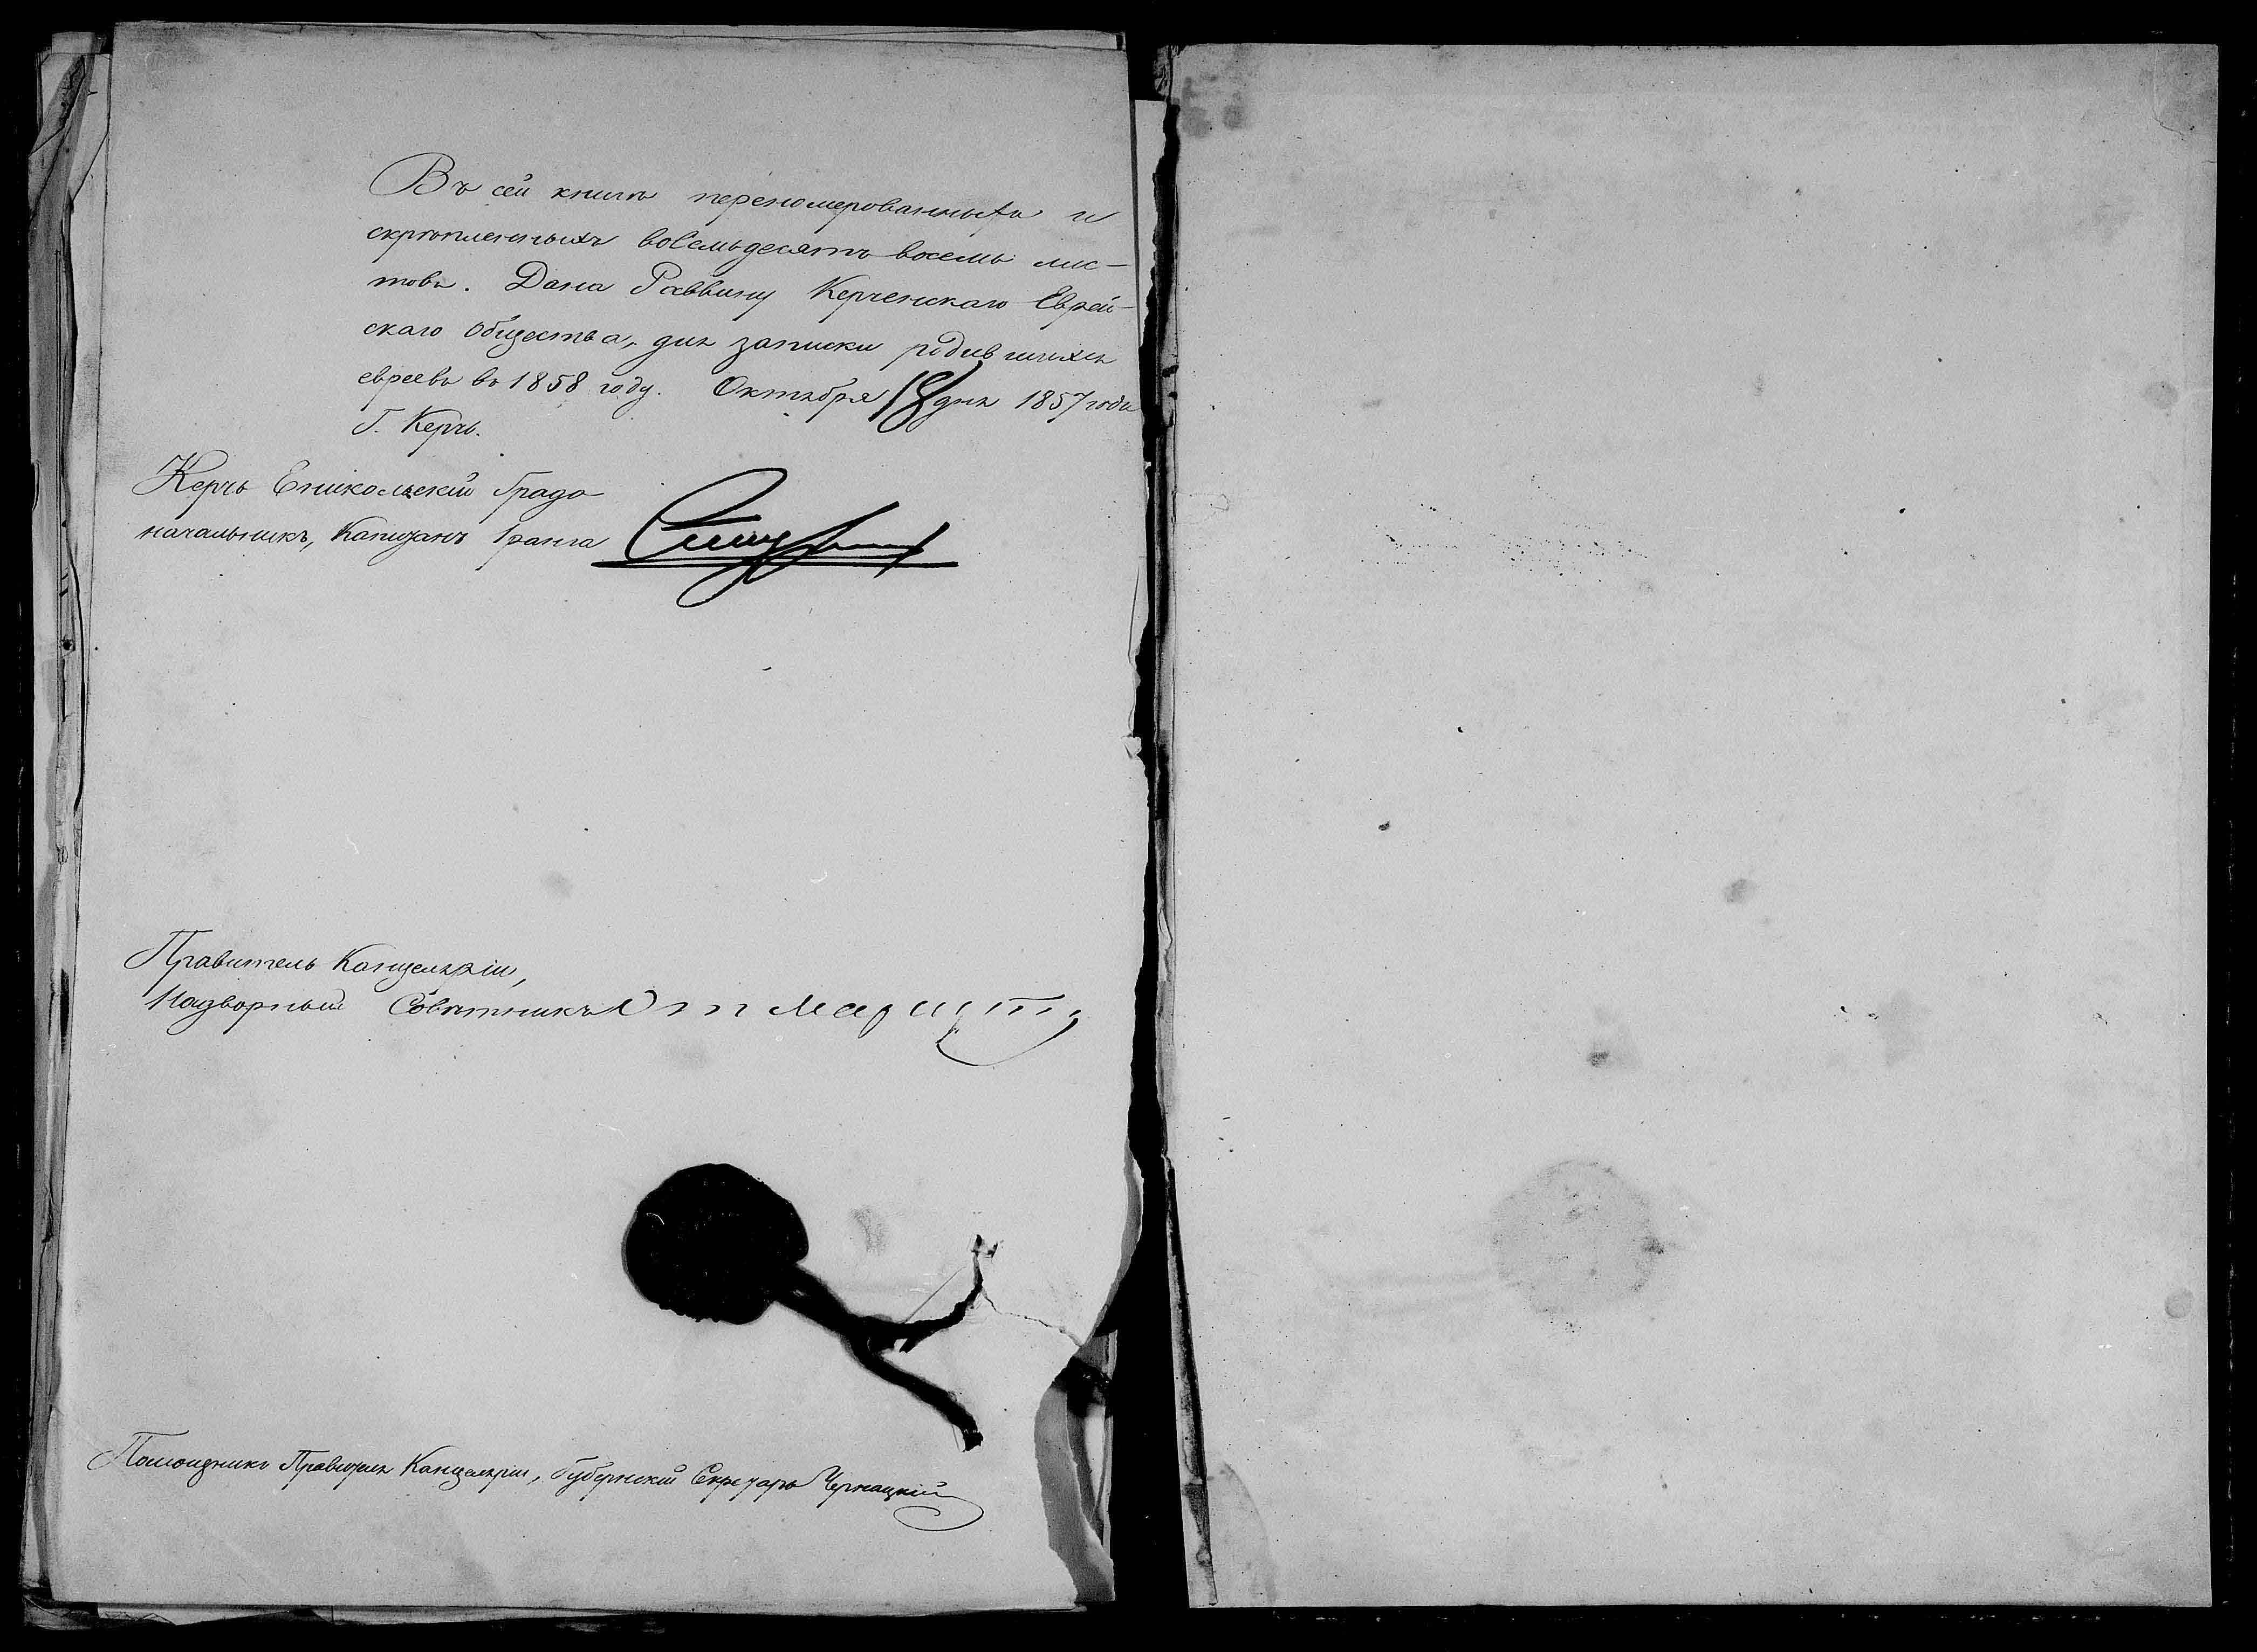 Въ сей книгѣ переномерованныхъ и
скрѣпленныхъ восемьдесятъ восемь лис-
товъ. Дана Раввину Керченскаго Еврей-
скаго Общества, для записки родившихся
евреевъ въ 1858 году. Октября 18 дня 1857 года
Г. Керчь.
Керчь Еникольскій Градо
начальникъ, Капитанъ 1 ранга
Правитель Канцеляріи,
Надворный Совѣтникъ
Помощникъ Правителя Канцеляріи, Губернскій Секретарь Чернацкій